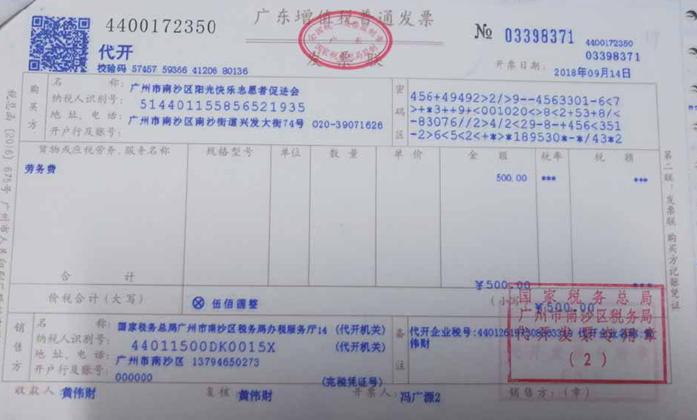 4400172350
广东增值税普通发票
№ 03398371
4400172350
03398371
代开
校验码 57457 59366 41206 80136
开票日期: 2018年09月14日
购买方
名 称: 广州市南沙区阳光快乐志愿者促进会
纳税人识别号: 514401155856521935
地 址、电 话: 广州市南沙区南沙街道兴发大街74号 020-39071626
开户行及账号:
密码区
456+49492>2/>9--4563301-6<7
>+*3+9+<001020<>8<2+53+8/<
-83076//2>4/2<29-8-+456<351
-2>6<5<2<+*>*189530*-*/43*2
货物或应税劳务、服务名称 规格型号 单位 数 量 单 价 金 额 税率 税 额
劳务费 500.00 *** ***
合 计 ¥500.00 ***
价税合计(大写) ⊗ 伍佰圆整 (小写) ¥500.00
销售方
名 称: 国家税务总局广州市南沙区税务局办税服务厅14 (代开机关)
纳税人识别号: 44011500DK0015X (代开机关)
地 址、电 话: 广州市南沙区 13794650273
开户行及账号: 000000 (完税凭证号)
备注
代开企业税号:
代开企业名称: 黄伟财
国家税务总局
广州市南沙区税务局
代开发票专用章
(2)
收款人: 黄伟财 复核: 黄伟财 开票人: 冯广源2 销售方:(章)
第二联:发票联 购买方记账凭证